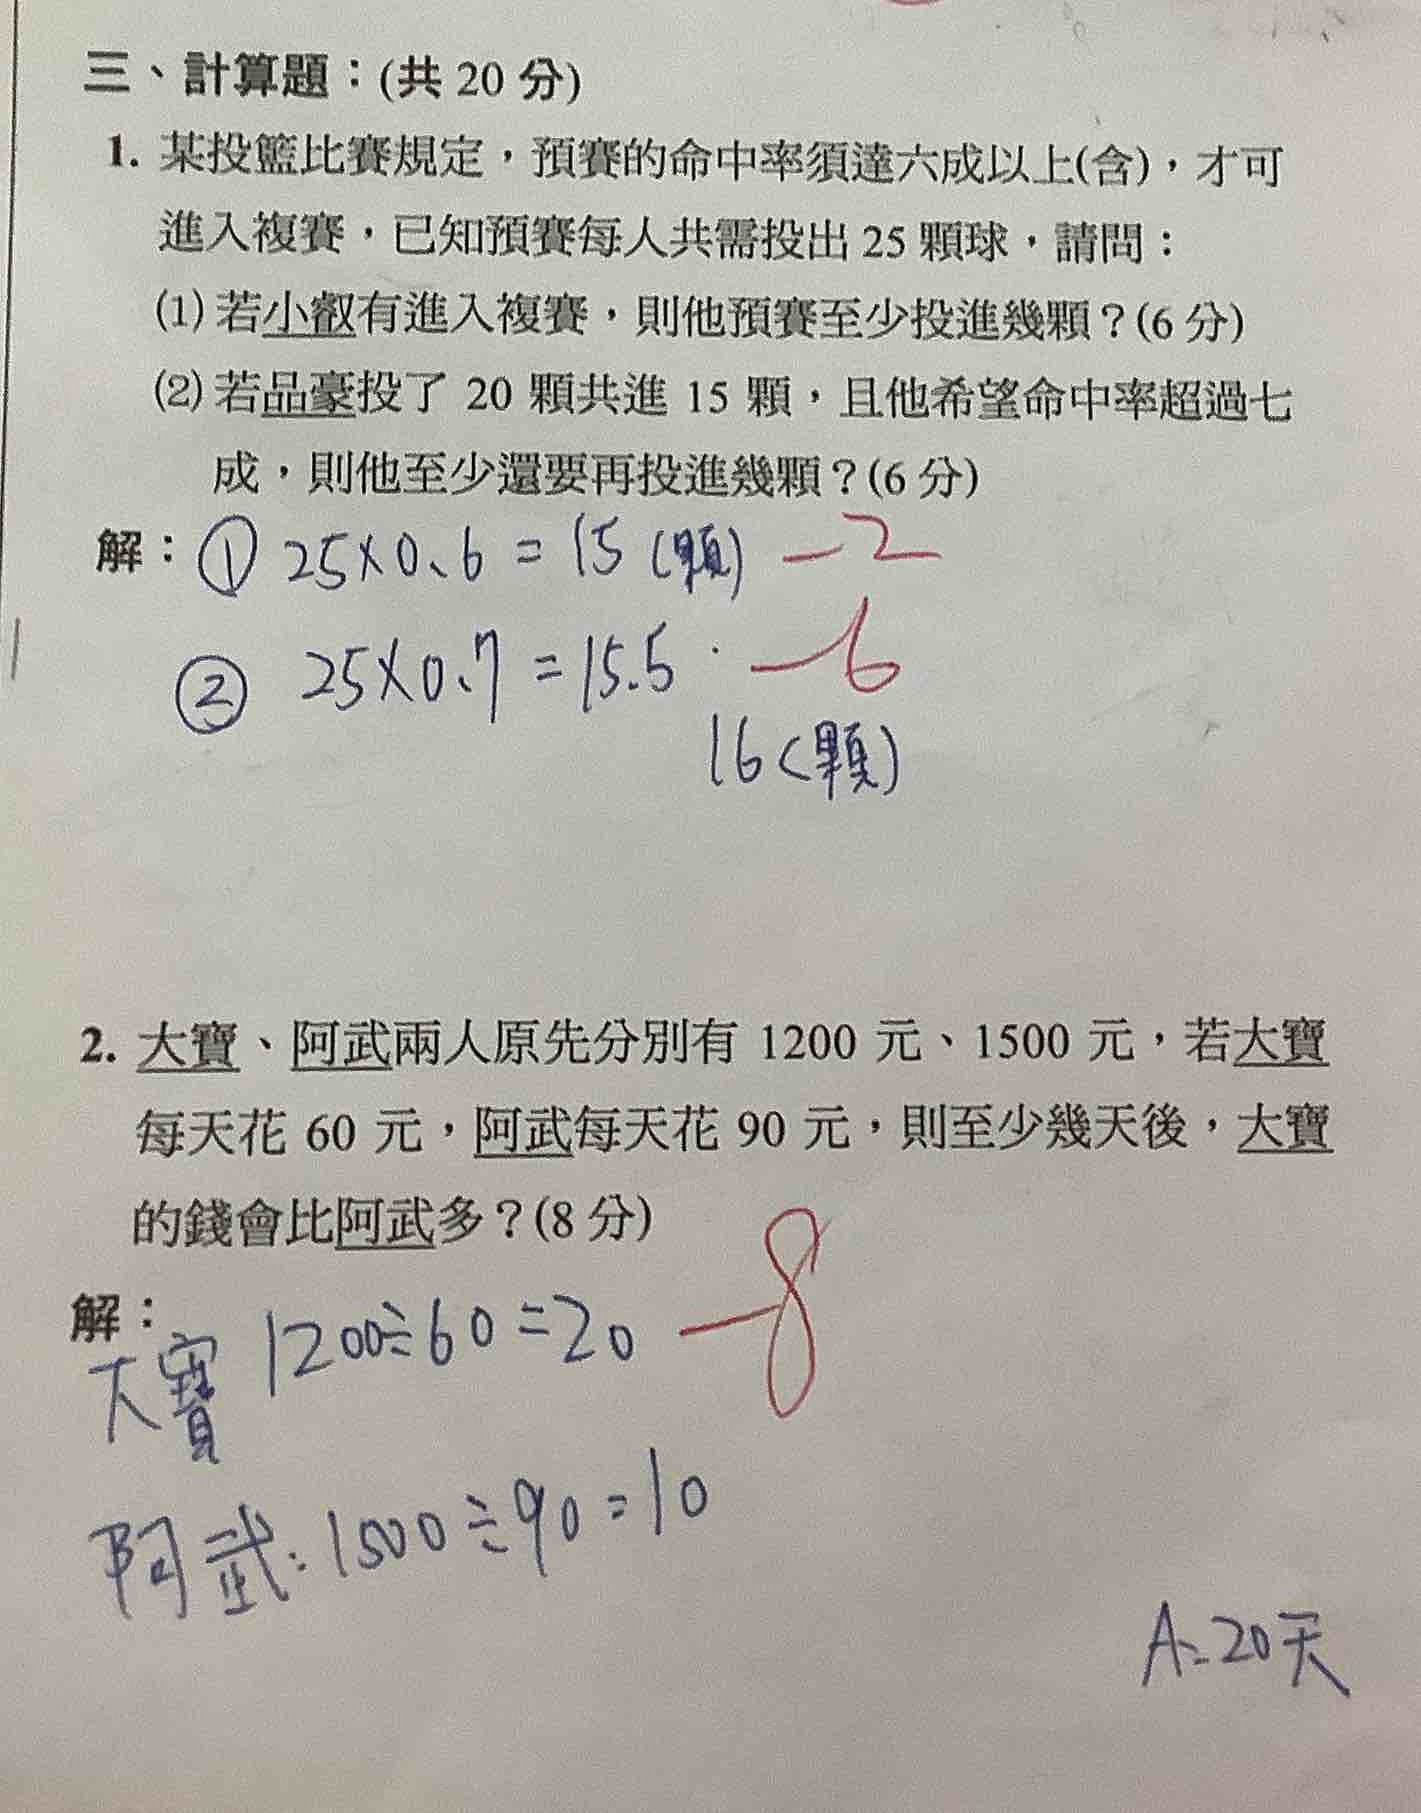 三、計算題：(共 20 分)
1. 某投籃比賽規定，預賽的命中率須達六成以上(含)，才可
進入複賽，已知預賽每人共需投出 25 顆球，請問：
(1) 若小叡有進入複賽，則他預賽至少投進幾顆？(6 分)
(2) 若品豪投了 20 顆共進 15 顆，且他希望命中率超過七
成，則他至少還要再投進幾顆？(6 分)
解：① 25×0.6 = 15 (顆) －2
② 25×0.7 = 15.5 －6
16(顆)
2. 大寶、阿武兩人原先分別有 1200 元、1500 元，若大寶
每天花 60 元，阿武每天花 90 元，則至少幾天後，大寶
的錢會比阿武多？(8 分)
解：
大寶 1200÷60=20 －8
阿武：1500÷90=10
A=20天